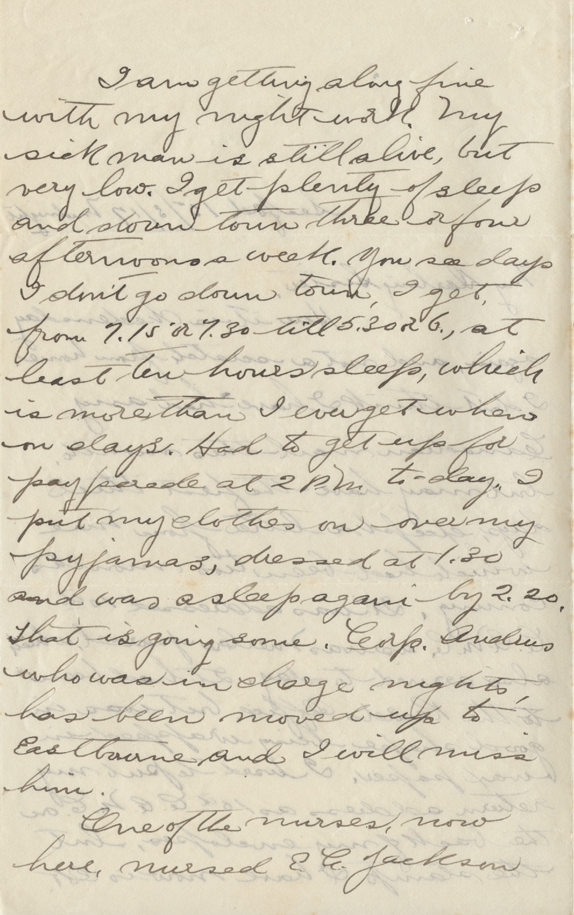 I am getting along fine
with my night work. My
sick man is still alive, but
very low. I get plenty of sleep
and down town three or four
afternoons a week. You see days
I don't go down town, I get,
from 7.15 or 7.30 till 5.30 or 6., at
least ten hours sleep, which
is more than I ever get when
on days. Had to get up for
pay parade at 2 P.M. to-day. I
put my clothes on over my
pyjamas, dressed at 1.30
and was asleep again by 2.20.
That is going some. Corp. Andrus
who was in charge nights,
has been moved up to
Eastbourne and I will miss
him.
One of the nurses, now
here, nursed E. C. Jackson